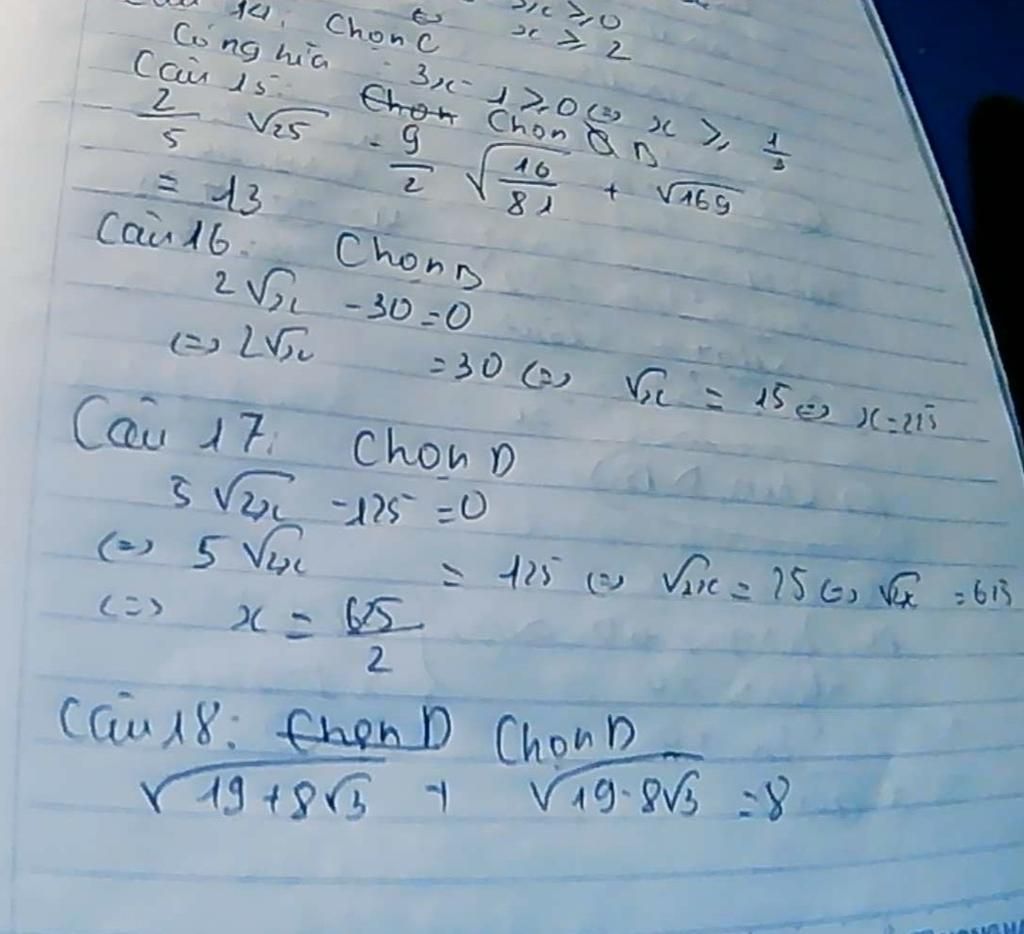 14: Chọn C ⇔ x ≥ 2
Có nghĩa : 3x - 1 ≥ 0 ⇔ x ≥ 1/3
Câu 15: Chọn Chọn B
2/5 √25 - 9/2 √(16/81) + √169
= 13
Câu 16: Chọn B
2√x - 30 = 0
⇔ 2√x = 30 ⇔ √x = 15 ⇔ x = 225
Câu 17: Chọn D
5√2x - 125 = 0
⇔ 5√2x = 125 ⇔ √2x = 25 ⇔ √2x = 625
⇔ x = 625/2
Câu 18: Chọn D Chọn D
√(19 + 8√3) + √(19 - 8√3) = 8